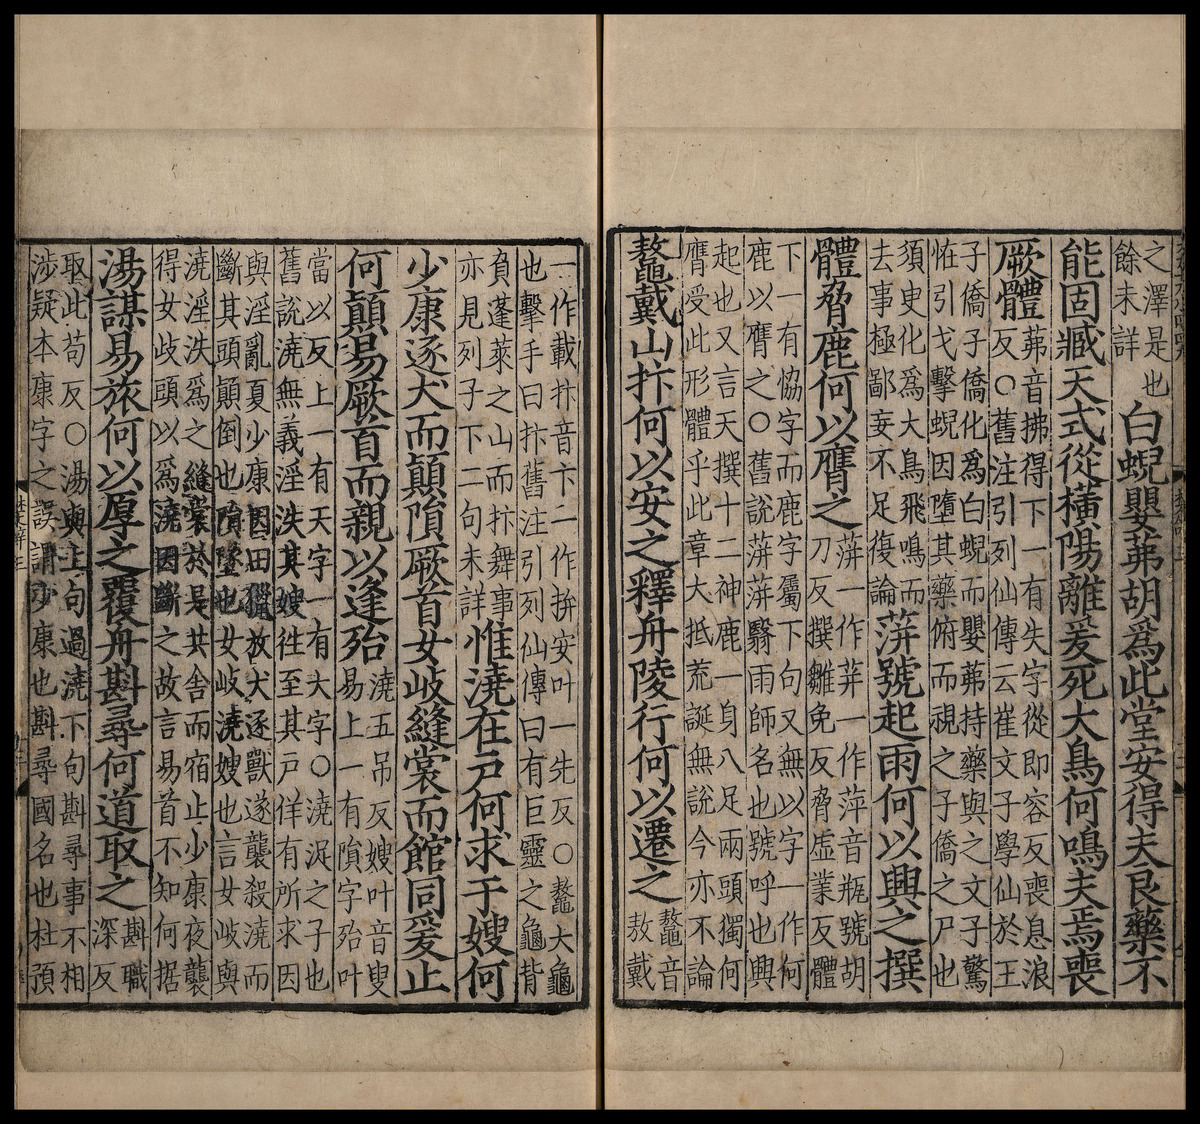 之澤是也
餘未詳
白蜺嬰茀胡爲此堂安得夫良藥不
能固臧天式從橫陽離爰死大鳥何鳴夫焉喪
厥體
茀音拂得下一有失字從即容反喪息浪
反○舊注引列仙傳云崔文子學仙於王
子僑子僑化爲白蜺而嬰茀持藥與之文子驚
恠引戈擊蜺因墮其藥俯而視之子僑之尸也
須臾化為大鳥飛鳴而
去事極鄙妄不足復論
蓱號起雨何以興之撰
體脅鹿何以膺之
蓱一作荓一作萍音瓶號胡
刀反撰雛免反脅虛業反體
下一有協字而鹿字屬下句又無以字一作何
鹿以膺之○舊說蓱蓱翳雨師名也號呼也興
起也又言天撰十二神鹿一身八足兩頭獨何
膺受此形體乎此章大抵荒誕無說今亦不論
鼇戴山抃何以安之釋舟陵行何以遷之
鼇音
敖戴
一作載抃音卞一作拚安叶一先反○鼇大龜
也擊手曰抃舊注引列仙傳曰有巨靈之龜背
負蓬萊之山而抃舞事
亦見列子下二句未詳
惟澆在戶何求于嫂何
少康逐犬而顛隕厥首女歧縫裳而館同爰止
何顛易厥首而親以逢殆
澆五吊反嫂叶音叟
易上一有隕字殆叶
當以反上一有天字一有大字○澆浞之子也
舊說澆無義淫泆其嫂往至其戶佯有所求因
與淫亂夏少康因田獵放犬逐獸遂襲殺澆而
斷其頭顛倒也隕墜也女歧澆嫂也言女歧與
澆淫泆爲之縫裳於是共舍而宿止少康夜襲
得女歧頭以爲澆因斷之故言易首不知何据
湯謀易旅何以厚之覆舟斟尋何道取之
斟職
深反
取此苟反○湯與上句過澆下句斟尋事不相
涉疑本康字之誤謂少康也斟尋國名也杜預